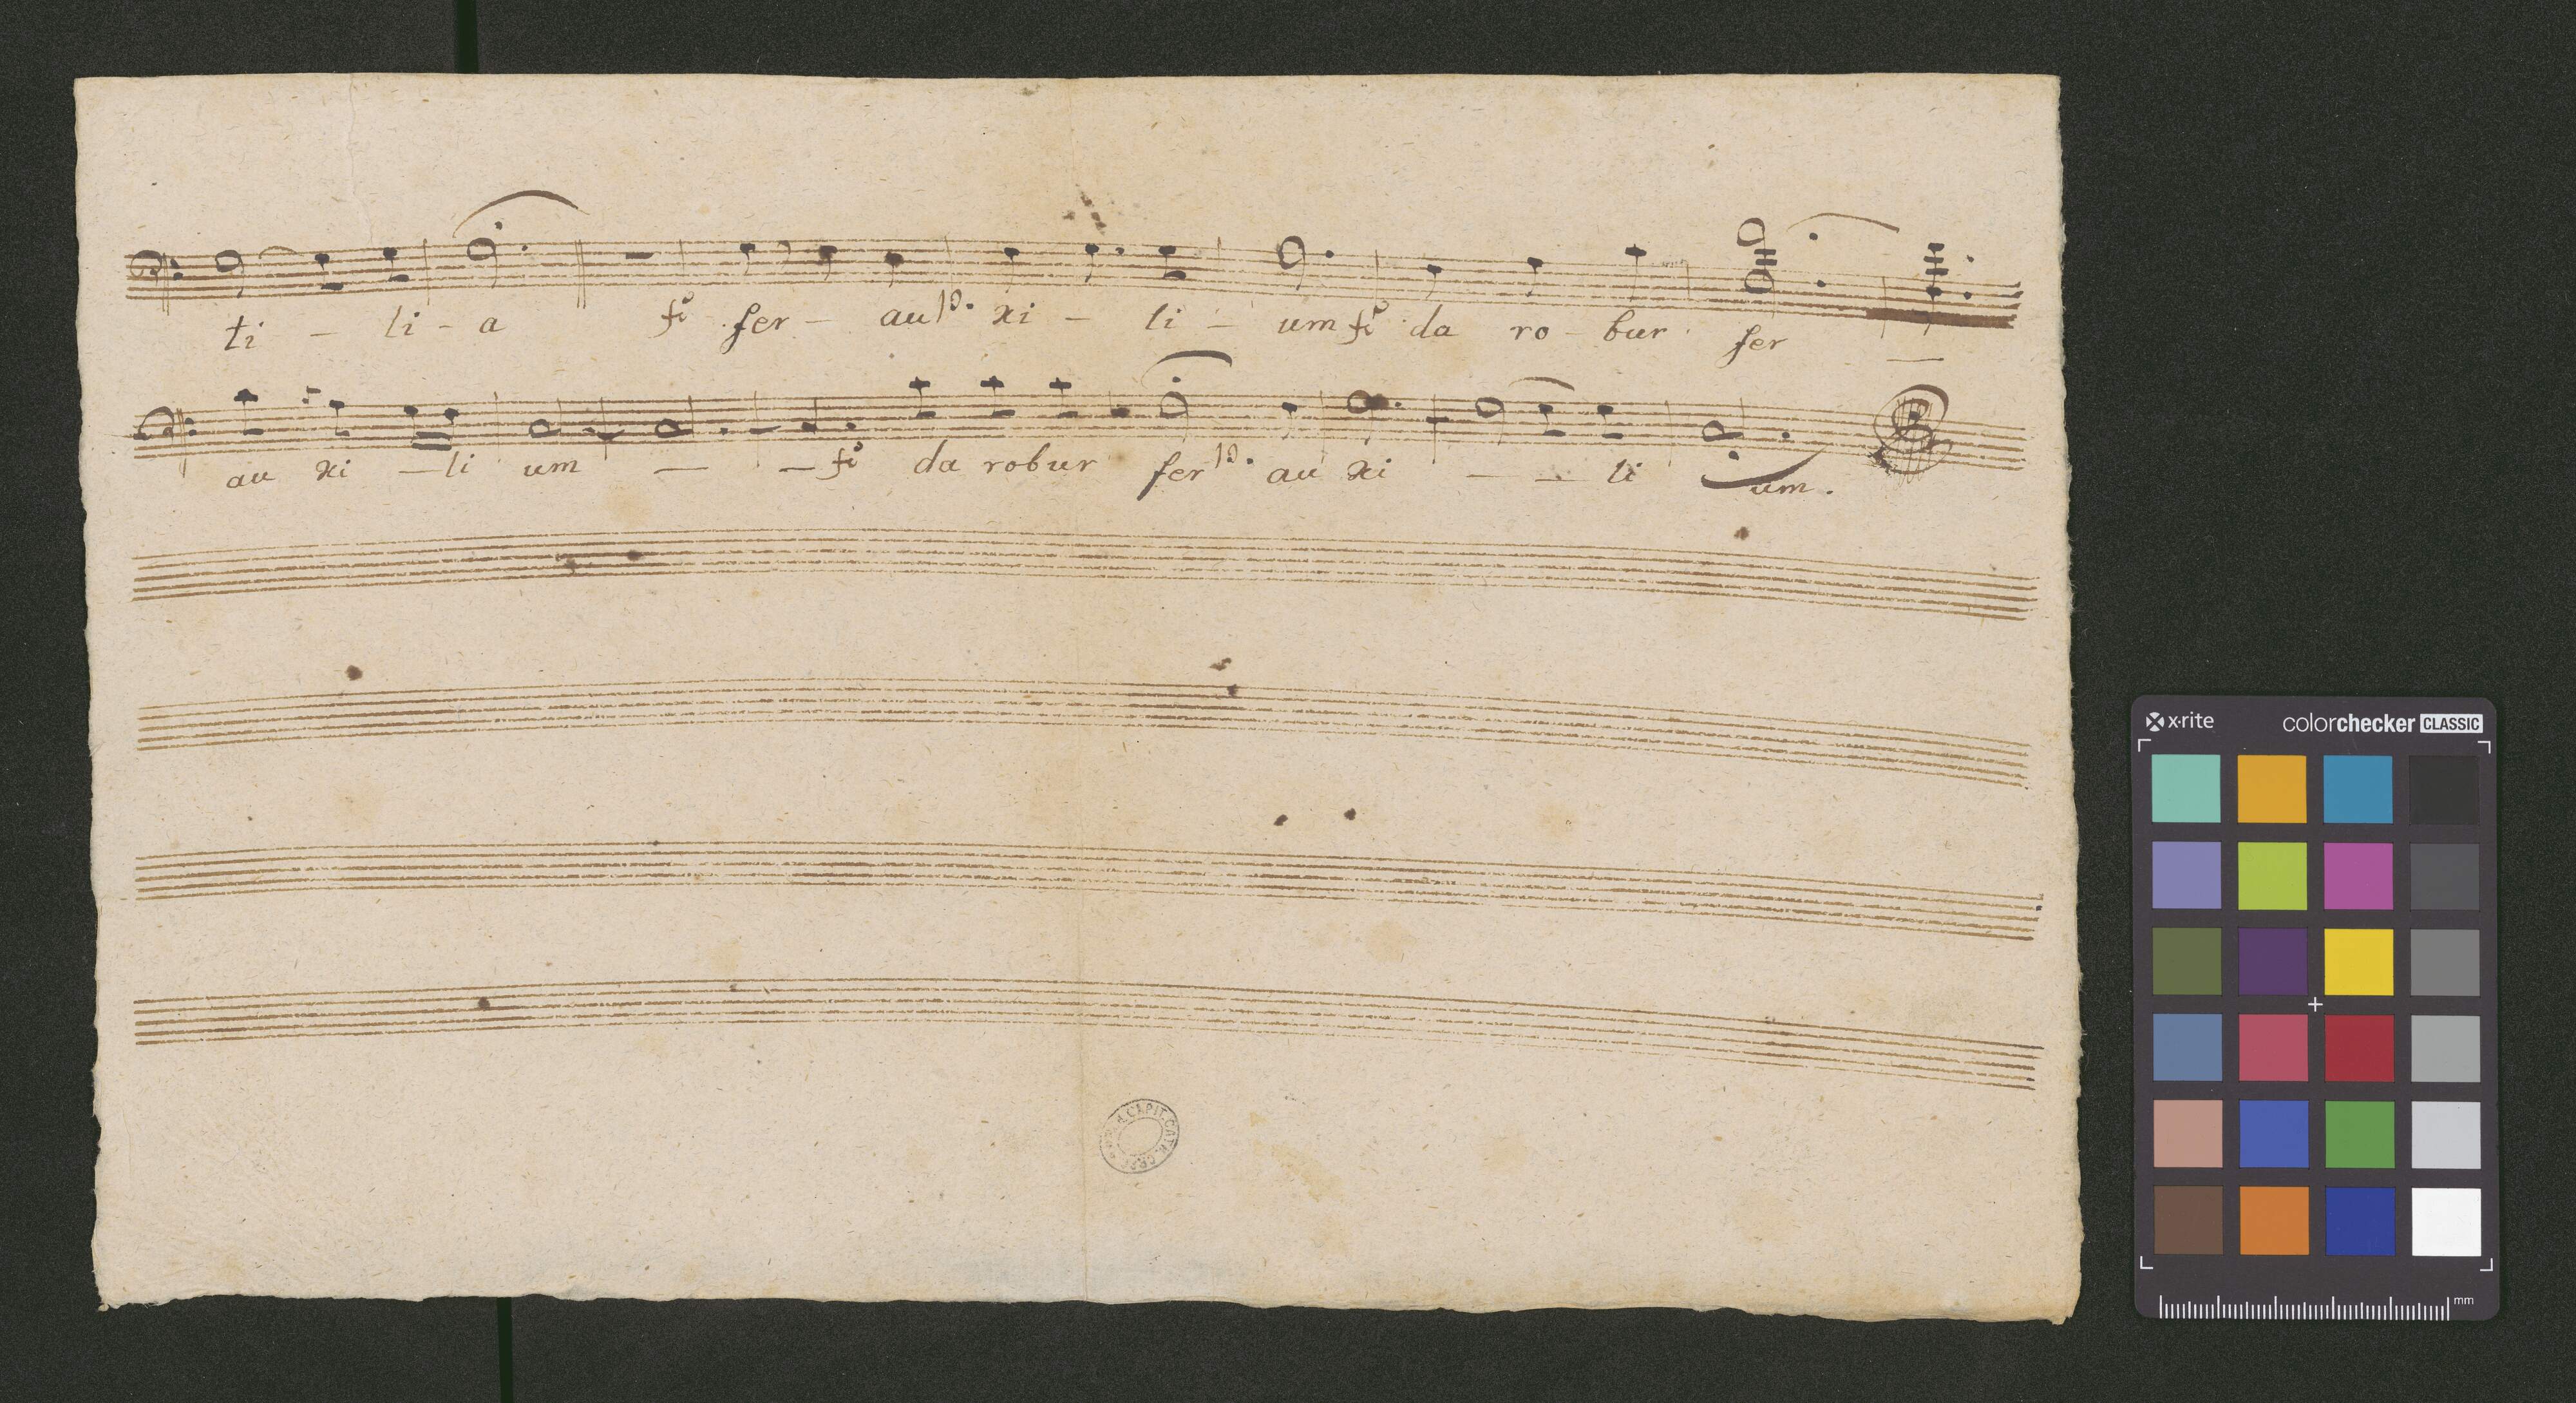 ti - li - a fo fer - au po. xi - li - um fo da ro - bur fer -
au xi - li um - - fo da robur fer po. au xi - - li um.
x-rite colorchecker CLASSIC
mm